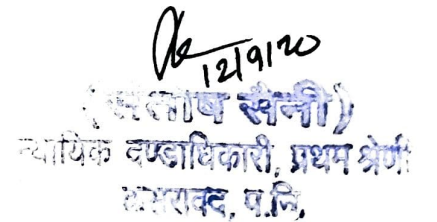 12/9/20
(संतोष सैनी)
न्यायिक दण्डाधिकारी, प्रथम श्रेणी
कसरावद, प.नि.